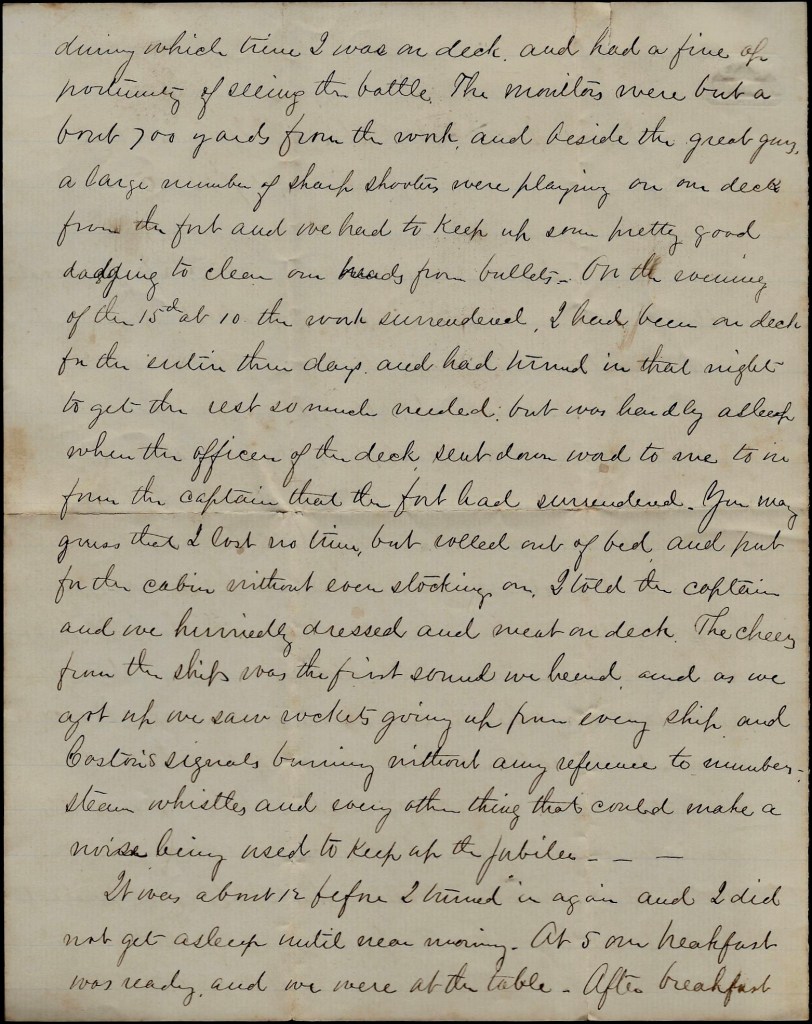 during which time I was on deck. and had a fine op
portunity of seeing the battle. The monitors were but a
bout 700 yards from the work, and beside the great guns,
a large number of sharp shooters were playing on our decks
from the fort and we had to keep up some pretty good
dodging to clear our heads from bullets - On the evening
of the 15th at 10 the work surrendered, I had been on deck
for the entire three days. and had turned in that night
to get the rest so much needed, but was hardly asleep
when the officer of the deck sent down word to me to in
form the captain that the fort had surrendered. You may
guess that I lost no time, but rolled out of bed and put
for the cabin without even stockings on, I told the captain
and we hurriedly dressed and went on deck. The cheers
from the ships was the first sound we heard and as we
got up we saw rockets going up from every ship and
Coston's signals burning without any reference to numbers -
steam whistles and every other thing that could make a
noise being used to keep up the jubilee - - -
It was about 12 before I turned in again and I did
not get asleep until near morning. At 5 our breakfast
was ready, and we were at the table - After breakfast